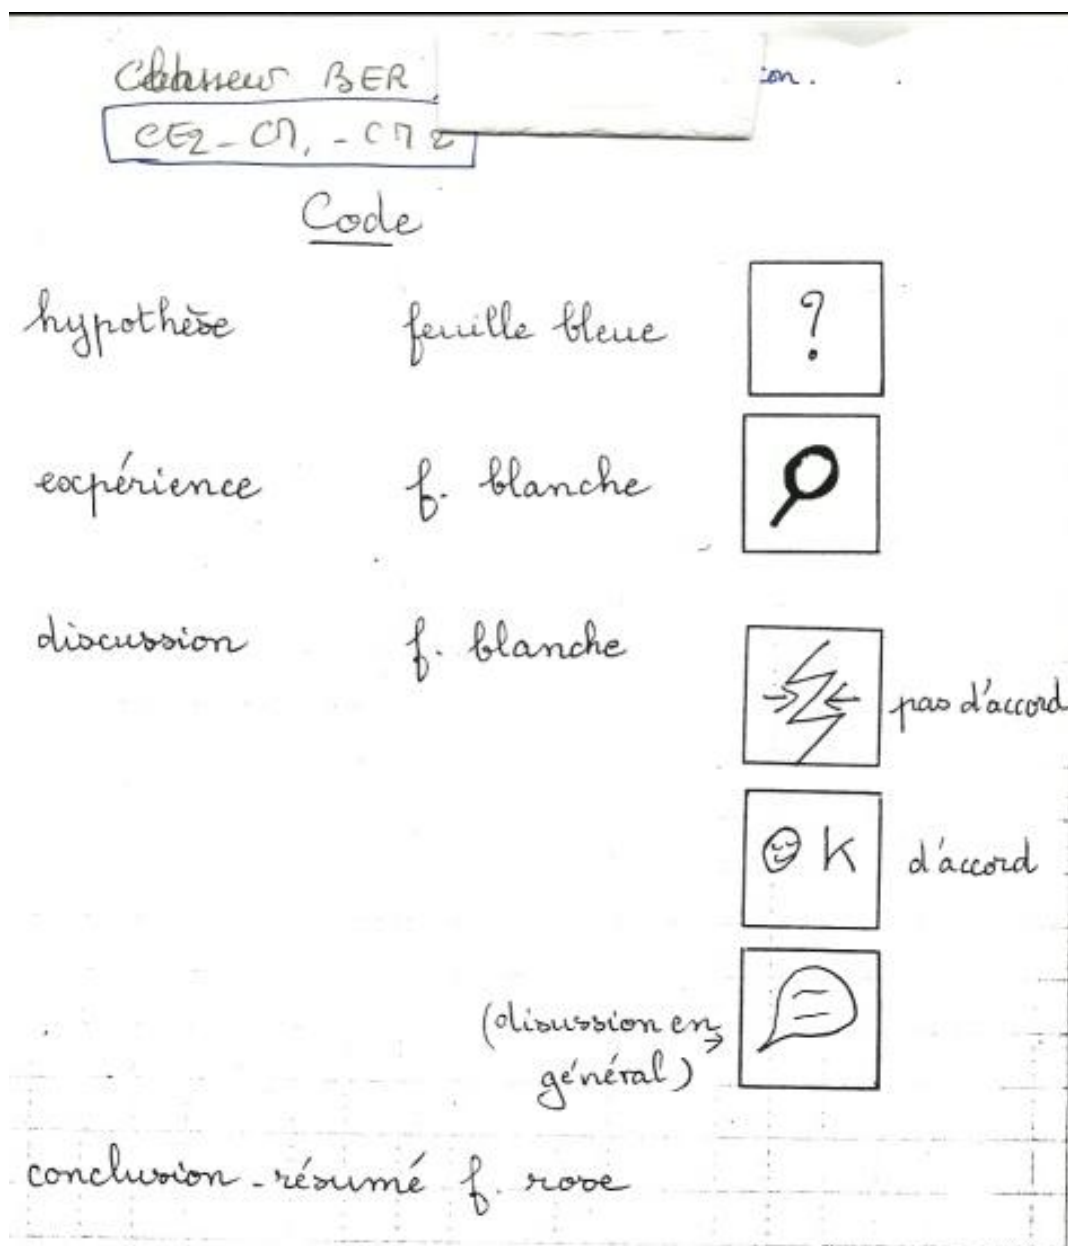 Classeur BER
CE2 - CM1 - CM2
Code
hypothèse feuille bleue ?
expérience f. blanche
discussion f. blanche
pas d'accord
OK d'accord
(disussion en
général)
conclusion - résumé f. rose